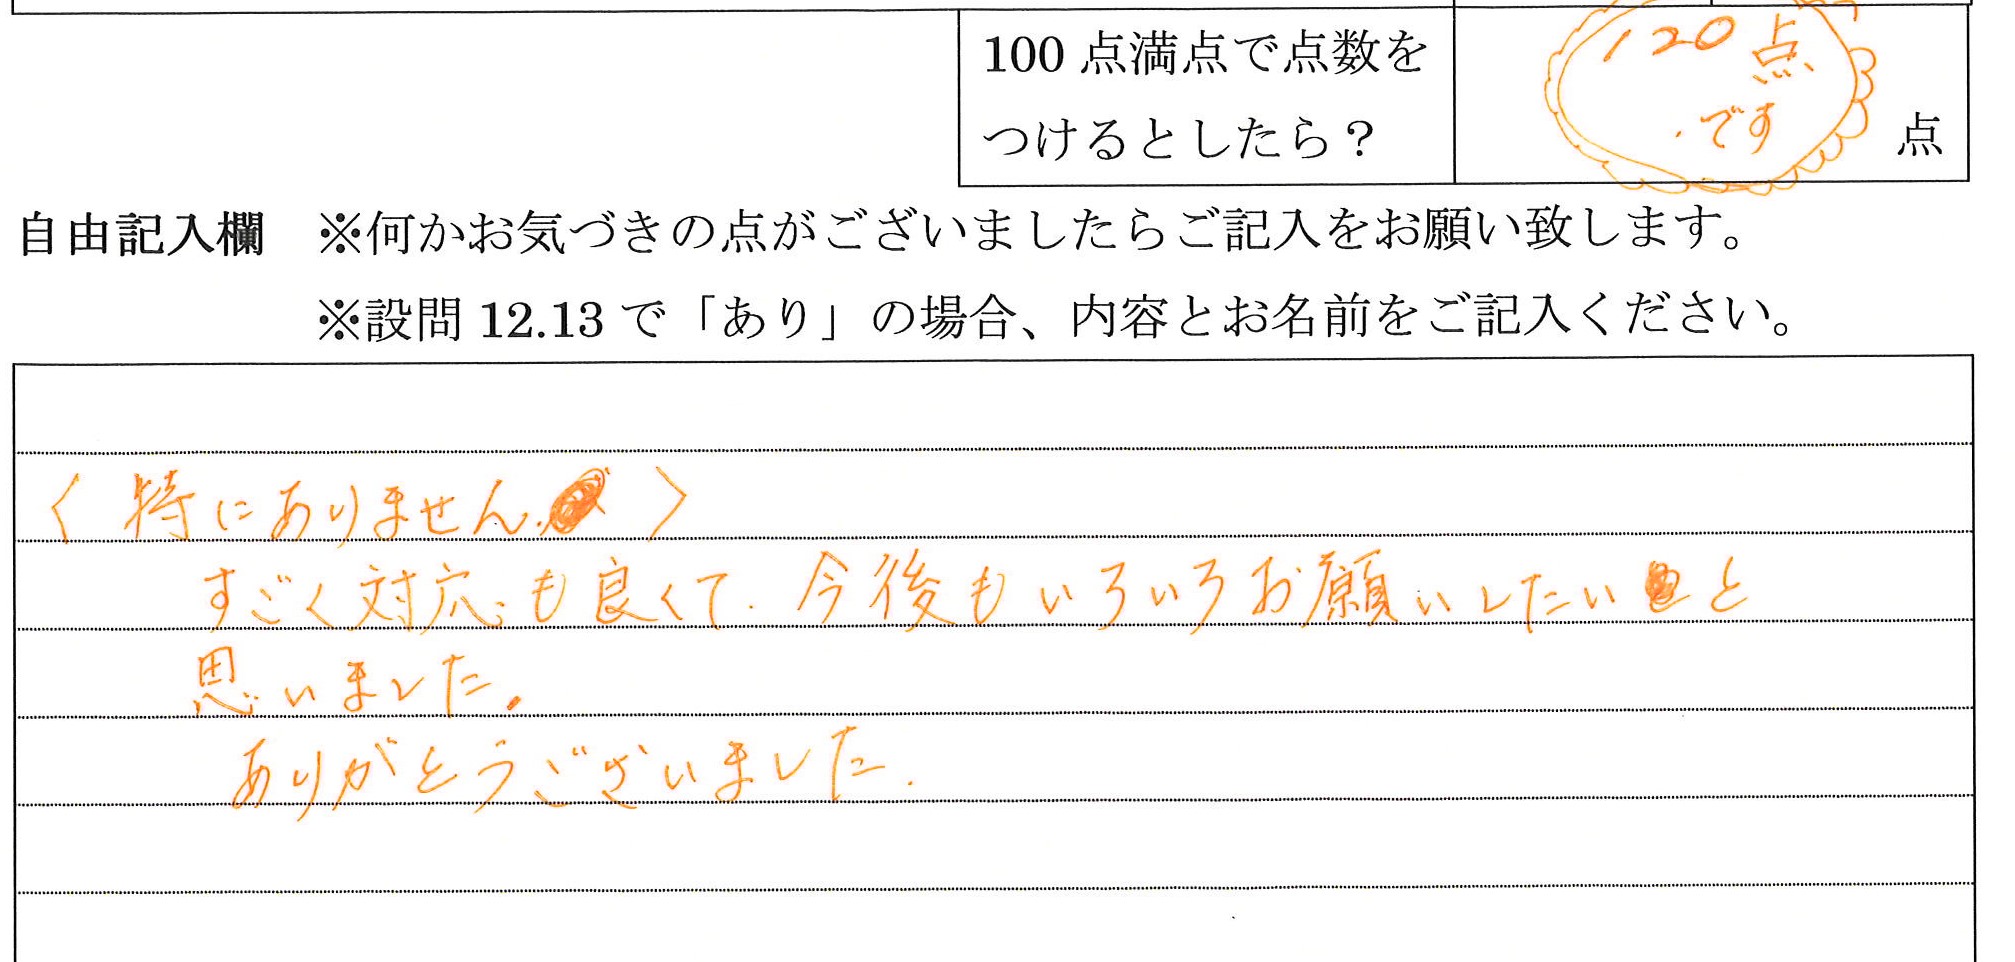 100 点満点で点数を
つけるとしたら？
120点
です
点
自由記入欄 ※何かお気づきの点がございましたらご記入をお願い致します。
※設問 12.13 で「あり」の場合、内容とお名前をご記入ください。
〈 特にありません 〉
すごく対応も良くて、今後もいろいろお願いしたいと
思いました。
ありがとうございました.